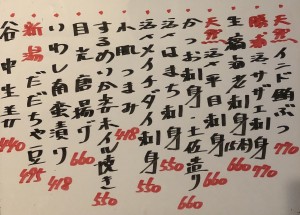 天然 インド鮪ぶつ 770
勝浦 活サザエ刺身 770
生縞海老刺身(5本付) 660
天然 活〆平目刺身 660
かつお刺身・土佐造り 660
活〆はまち刺身 550
活〆メイチダイ刺身 550
れ風つまみ 418
するめいか姿ホイル焼き 550
目光唐揚げ 660
いわし南蛮漬け 418
新潟 だだちゃ豆 495
谷中生姜 440